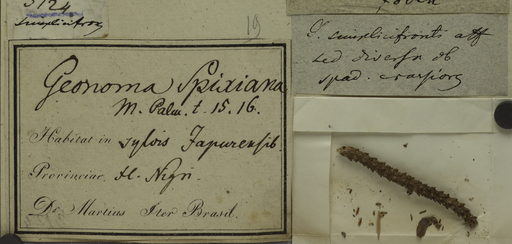 3124
simplicifrons
19
Geonoma Spixiana
M. Palm. t. 15. 16.
Habitat in sylvis Japurensib.
Provinciae fl. Nigri.
Dr. Martius Iter Brasil.
G. simplicifronti aff
sed diversa ob
spad. crassiora